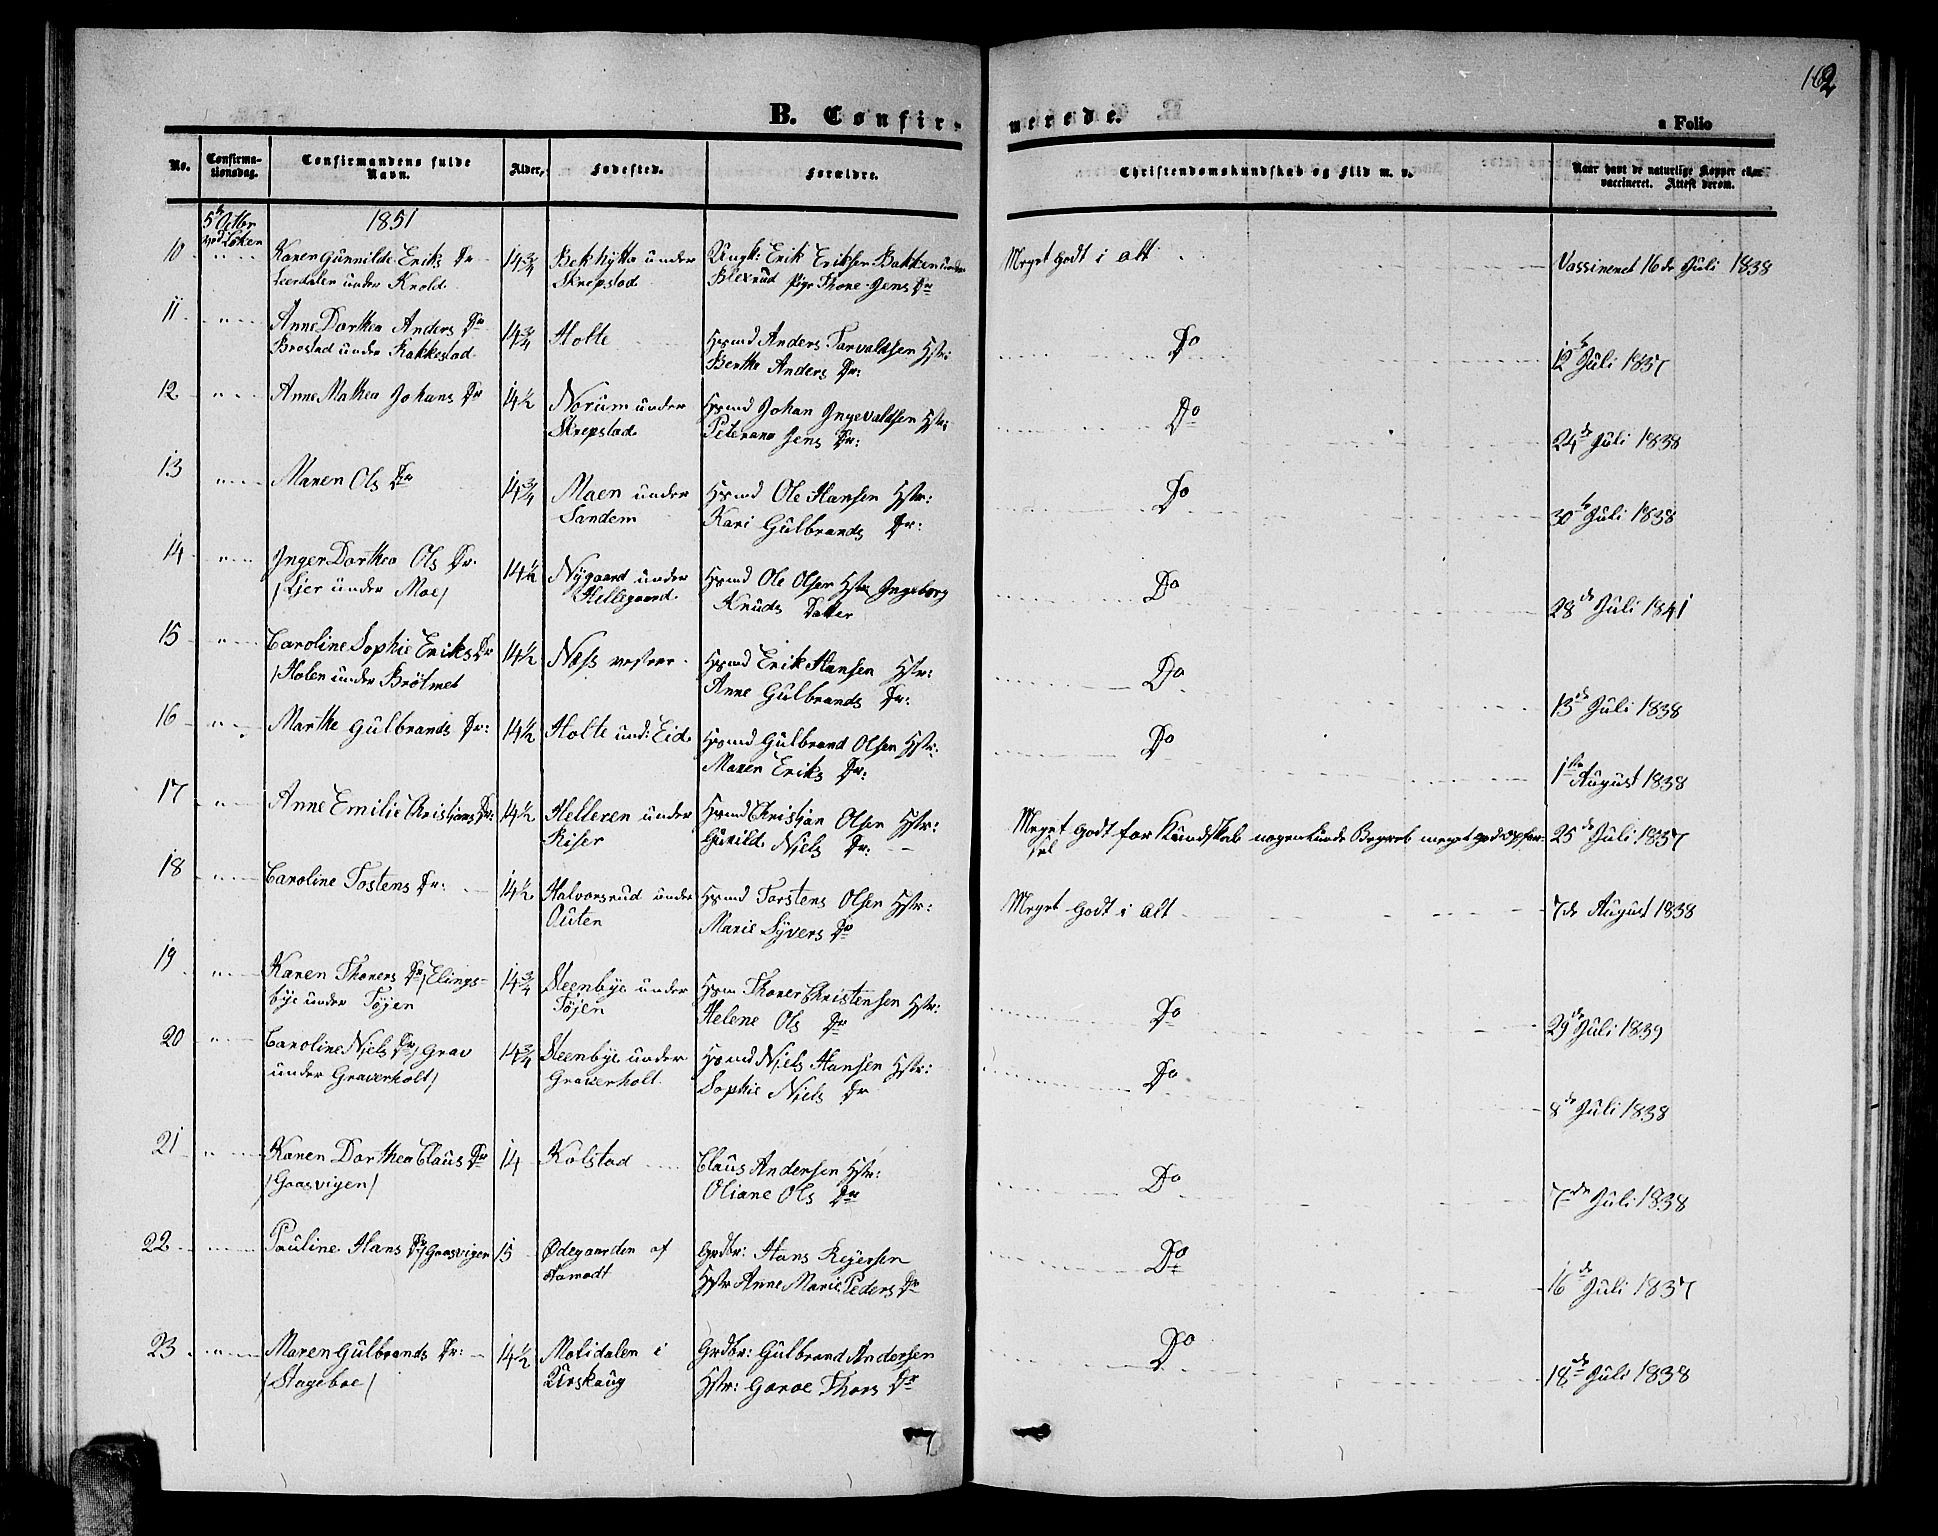 162
B. Confirmerede.
a Folio
No.
Confirmationsdag.
Confirmandens fulde Navn.
Alder.
Fødested.
Forældre.
Christendomskundskab og Flid m. v.
Naar havt de naturlige Kopper eller vaccineret. Attest derom.
5te Octbr ved Løken
1851
10 " Karen Gunnilde Eriks Dr 14 3/4 Bekhytte under Ungk: Erik Eriksen Bakken under Meget godt i alt Vassineret 16de Juli 1838
Leerdalen under Krold Skrepstad Blexrud Pige Thone Jens Dr
11 " Anne Dorthea Anders Dr 14 3/4 Holte Hsmd Anders Torvaldsen Hstr: Do 12te Juli 1837
Brostad under Kakkestad Berthe Anders Dr:
12 " Anne Mathea Johans Dr 14 1/2 Norum under Hsmd Johan Ingevaldsen Hstr: Do 24de Juli 1838
Skrepstad Peterane Jens Dr:
13 " Maren Ols Dr 14 3/4 Maen under Hsmd Ole Hansen Hstr: Do 30te Juli 1838
Sandem Kari Gulbrands Dr:
14 " Inger Dorthea Ols Dr. 14 1/2 Nygaard under Hsmd Ole Olsen Hstr Ingeborg Do 28de Juli 1841
/Lier under Moe/ Hellegaard Knuds Datter
15 " Caroline Sophie Eriks Dr 14 1/2 Næss vestre Hsmd Erik Hansen Hstr: Do 13de Juli 1838
/Holen under Brøtmet Anne Gulbrands Dr:
16 " Marthe Gulbrands Dr: 14 1/2 Holte und: Eid Hsmd Gulbrand Olsen Hstr: Do 1ste August 1838
Maren Eriks Dr:
17 " Anne Emilie Christians Dr: 14 1/2 Helleren under Hsmd Christian Olsen Hstr: Meget godt for Kundskab nogenlunde Begreb meget god Opfør- 25de Juli 1837
Riser Gunild Niels Dr: sel
18 " Caroline Tostens Dr: 14 1/2 Halvorsrud under Hsmd Torstens Olsen Hstr: Meget godt i alt 7de August 1838
Outen Marie Syvers Dr
19 " Karen Thorers Dr /Elings- 14 3/4 Steenbye under Hsm Thorer Christensen Hstr: Do 29de Juli 1839
bye under Tøjen Tøjen Helene Ols Dr
20 " Caroline Niels Dr /Grav 14 3/4 Steenbye under Hsmd Niels Hansen Hstr: Do 8de Juli 1838
under Graverholt/ Graverholt Sophie Niels Dr
21 " Karen Dorthea Claus Dr 14 Kolstad Claus Andersen Hstr: Do 7de Juli 1838
/Gaasvigen/ Oliane Ols Dr
22 " Pauline Hans Dr /Gaasvigen 15 Ødegaarden af Grdbr: Hans Rejersen Do 16de Juli 1837
Aamodt Hstr Anne Marie Peders Dr
23 " Maren Gulbrands Dr: 14 1/2 Molidalen i Grdbr: Gulbrand Andersen Do 18de Juli 1838
/Stageboe/ Urskaug Hstr: Goroe Thors Dr